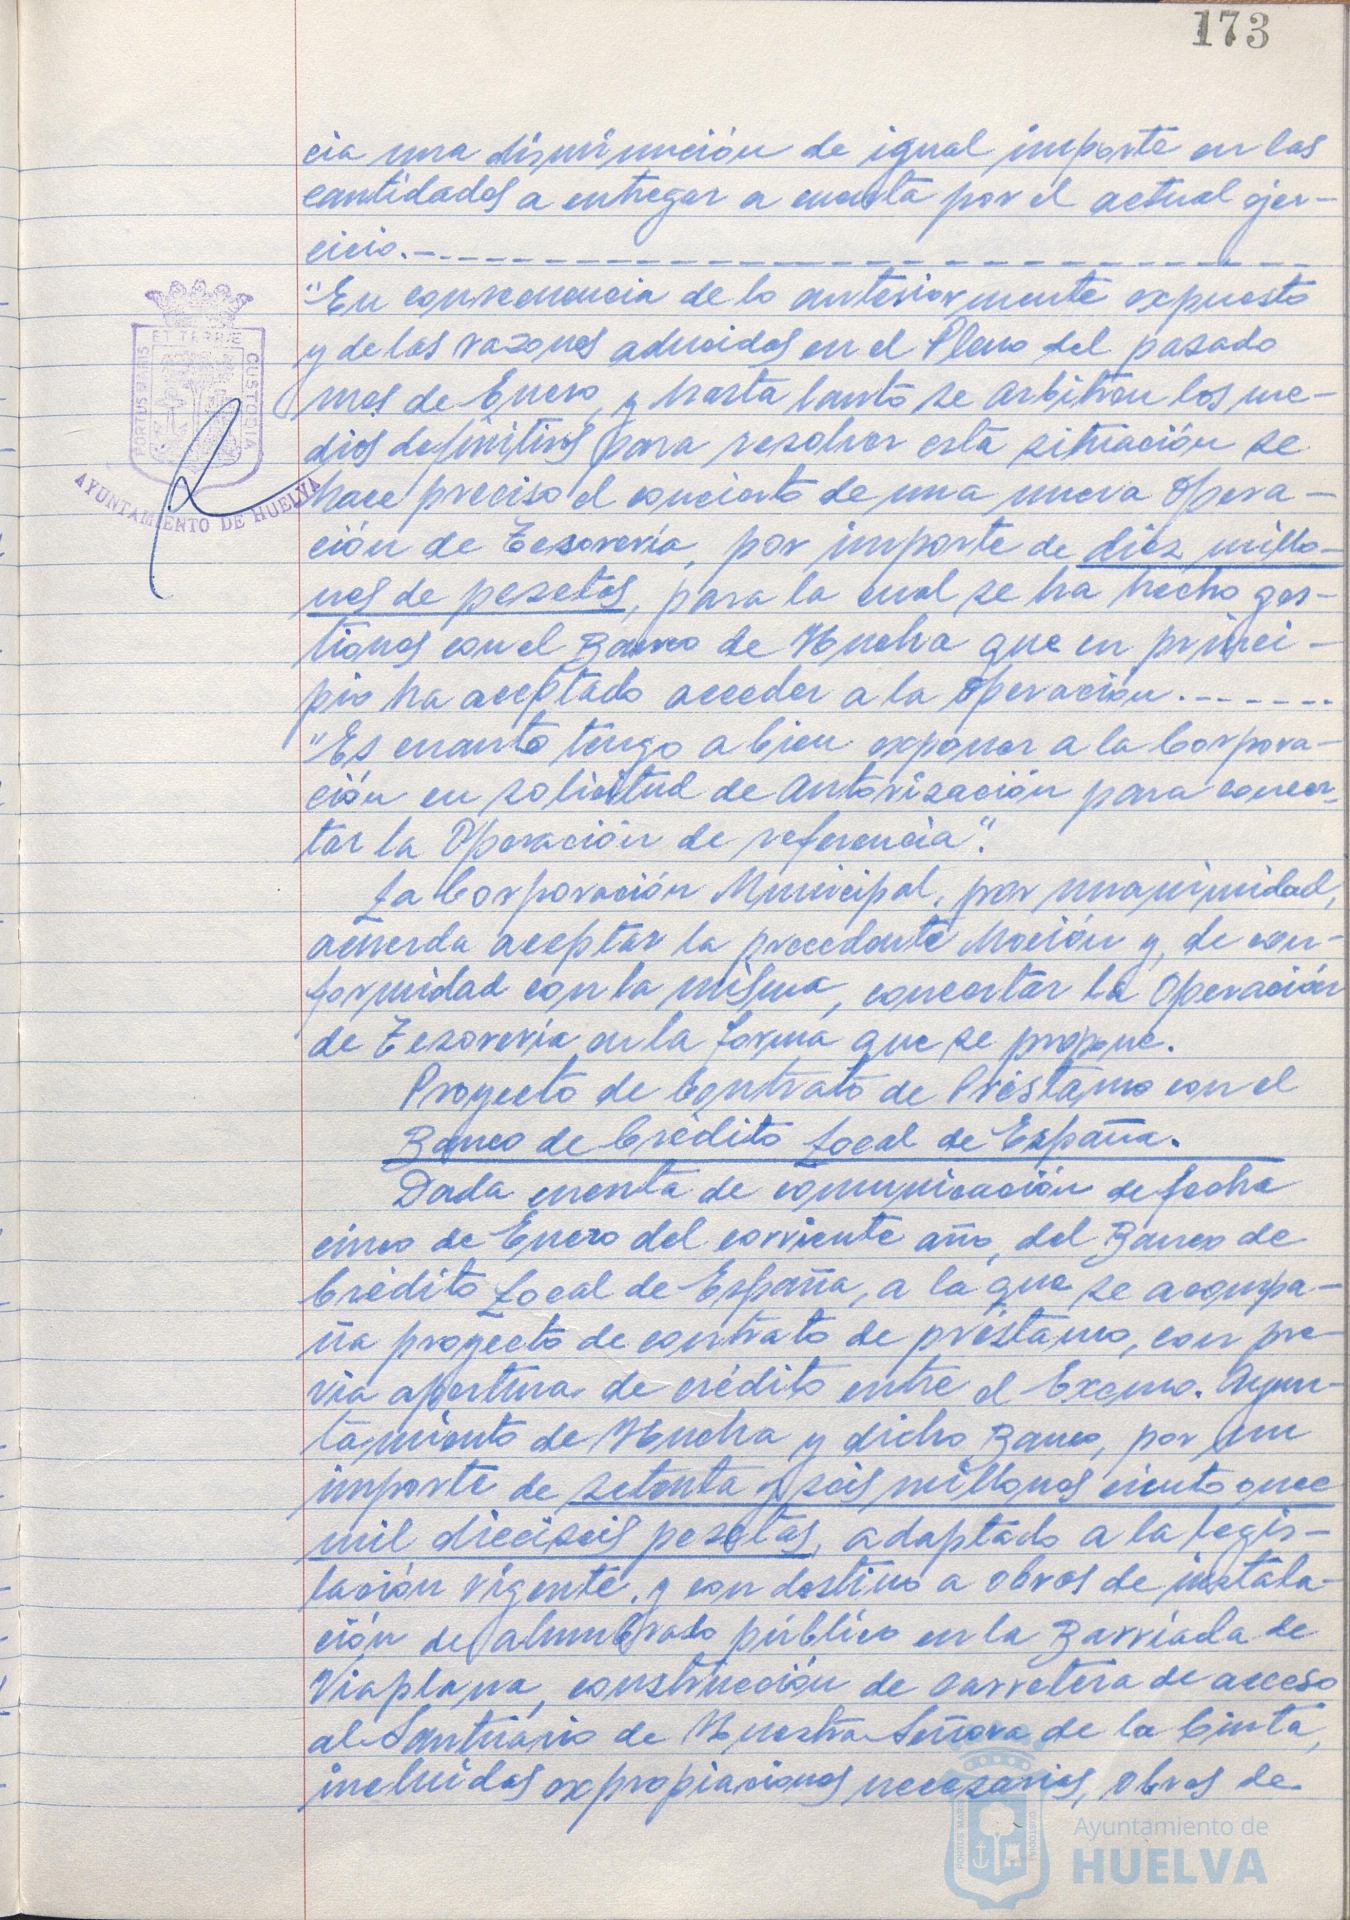 173
cia una disminución de igual importe en las
cantidades a entregar a cuenta por el actual ejer-
cicio.-
"En consecuencia de lo anteriormente expuesto
y de las razones aducidas en el Pleno del pasado
mes de Enero, y hasta tanto se arbitran los me-
dios definitivos para resolver esta situación se
hace preciso el concierto de una nueva Opera-
ción de Tesorería, por importe de diez millo-
nes de pesetas, para la cual se ha hecho ges-
tiones con el Banco de Huelva que en princi-
pio ha aceptado acceder a la Operación.-
"Es cuanto tengo a bien exponer a la Corpora-
ción en solicitud de autorización para concer-
tar la Operación de referencia".
La Corporación Municipal, por unanimidad,
acuerda aceptar la precedente Moción y, de con-
formidad con la misma, concertar la Operación
de Tesorería en la forma que se propone.
Proyecto de Contrato de Préstamo con el
Banco de Crédito Local de España.
Dada cuenta de comunicación de fecha
cinco de Enero del corriente año, del Banco de
Crédito Local de España, a la que se acompa-
ña proyecto de contrato de préstamo, con pre-
via apertura de crédito entre el Excmo. Ayun-
tamiento de Huelva y dicho Banco, por un
importe de setenta y seis millones ciento once
mil dieciseis pesetas, adaptado a la legis-
lación vigente, y con destino a obras de instala-
ción de alumbrado público en la Barriada de
Viaplana, construcción de carretera de acceso
al Santuario de Nuestra Señora de la Cinta,
incluidas expropiaciones necesarias, obras de
PORTUS MARIS
ET TERRÆ
CUSTODIA
AYUNTAMIENTO DE HUELVA
PORTUS MARIS
CUSTODIA
Ayuntamiento de
HUELVA